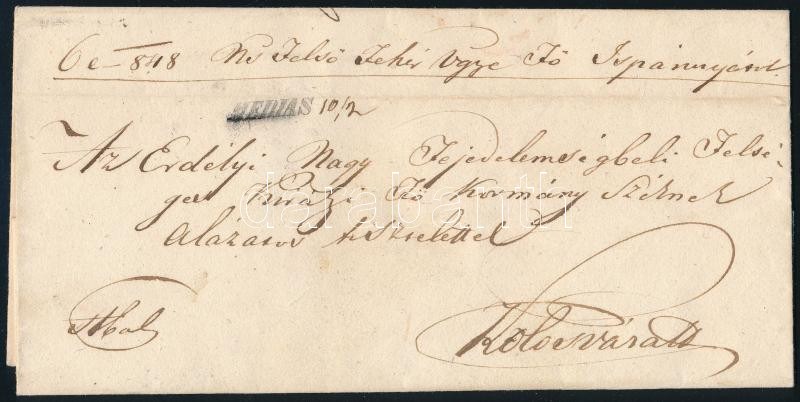 6 e 848 Ns Felső Fehér Vgye Fő Ispánnyáról
MEDIAS 10/2
Az Erdélyi Nagy Fejedelemségbeli Felsé-
ges Királyi Fő Kormány Széknek
alázatos tisztelettel
darabanth
Kolosváratt